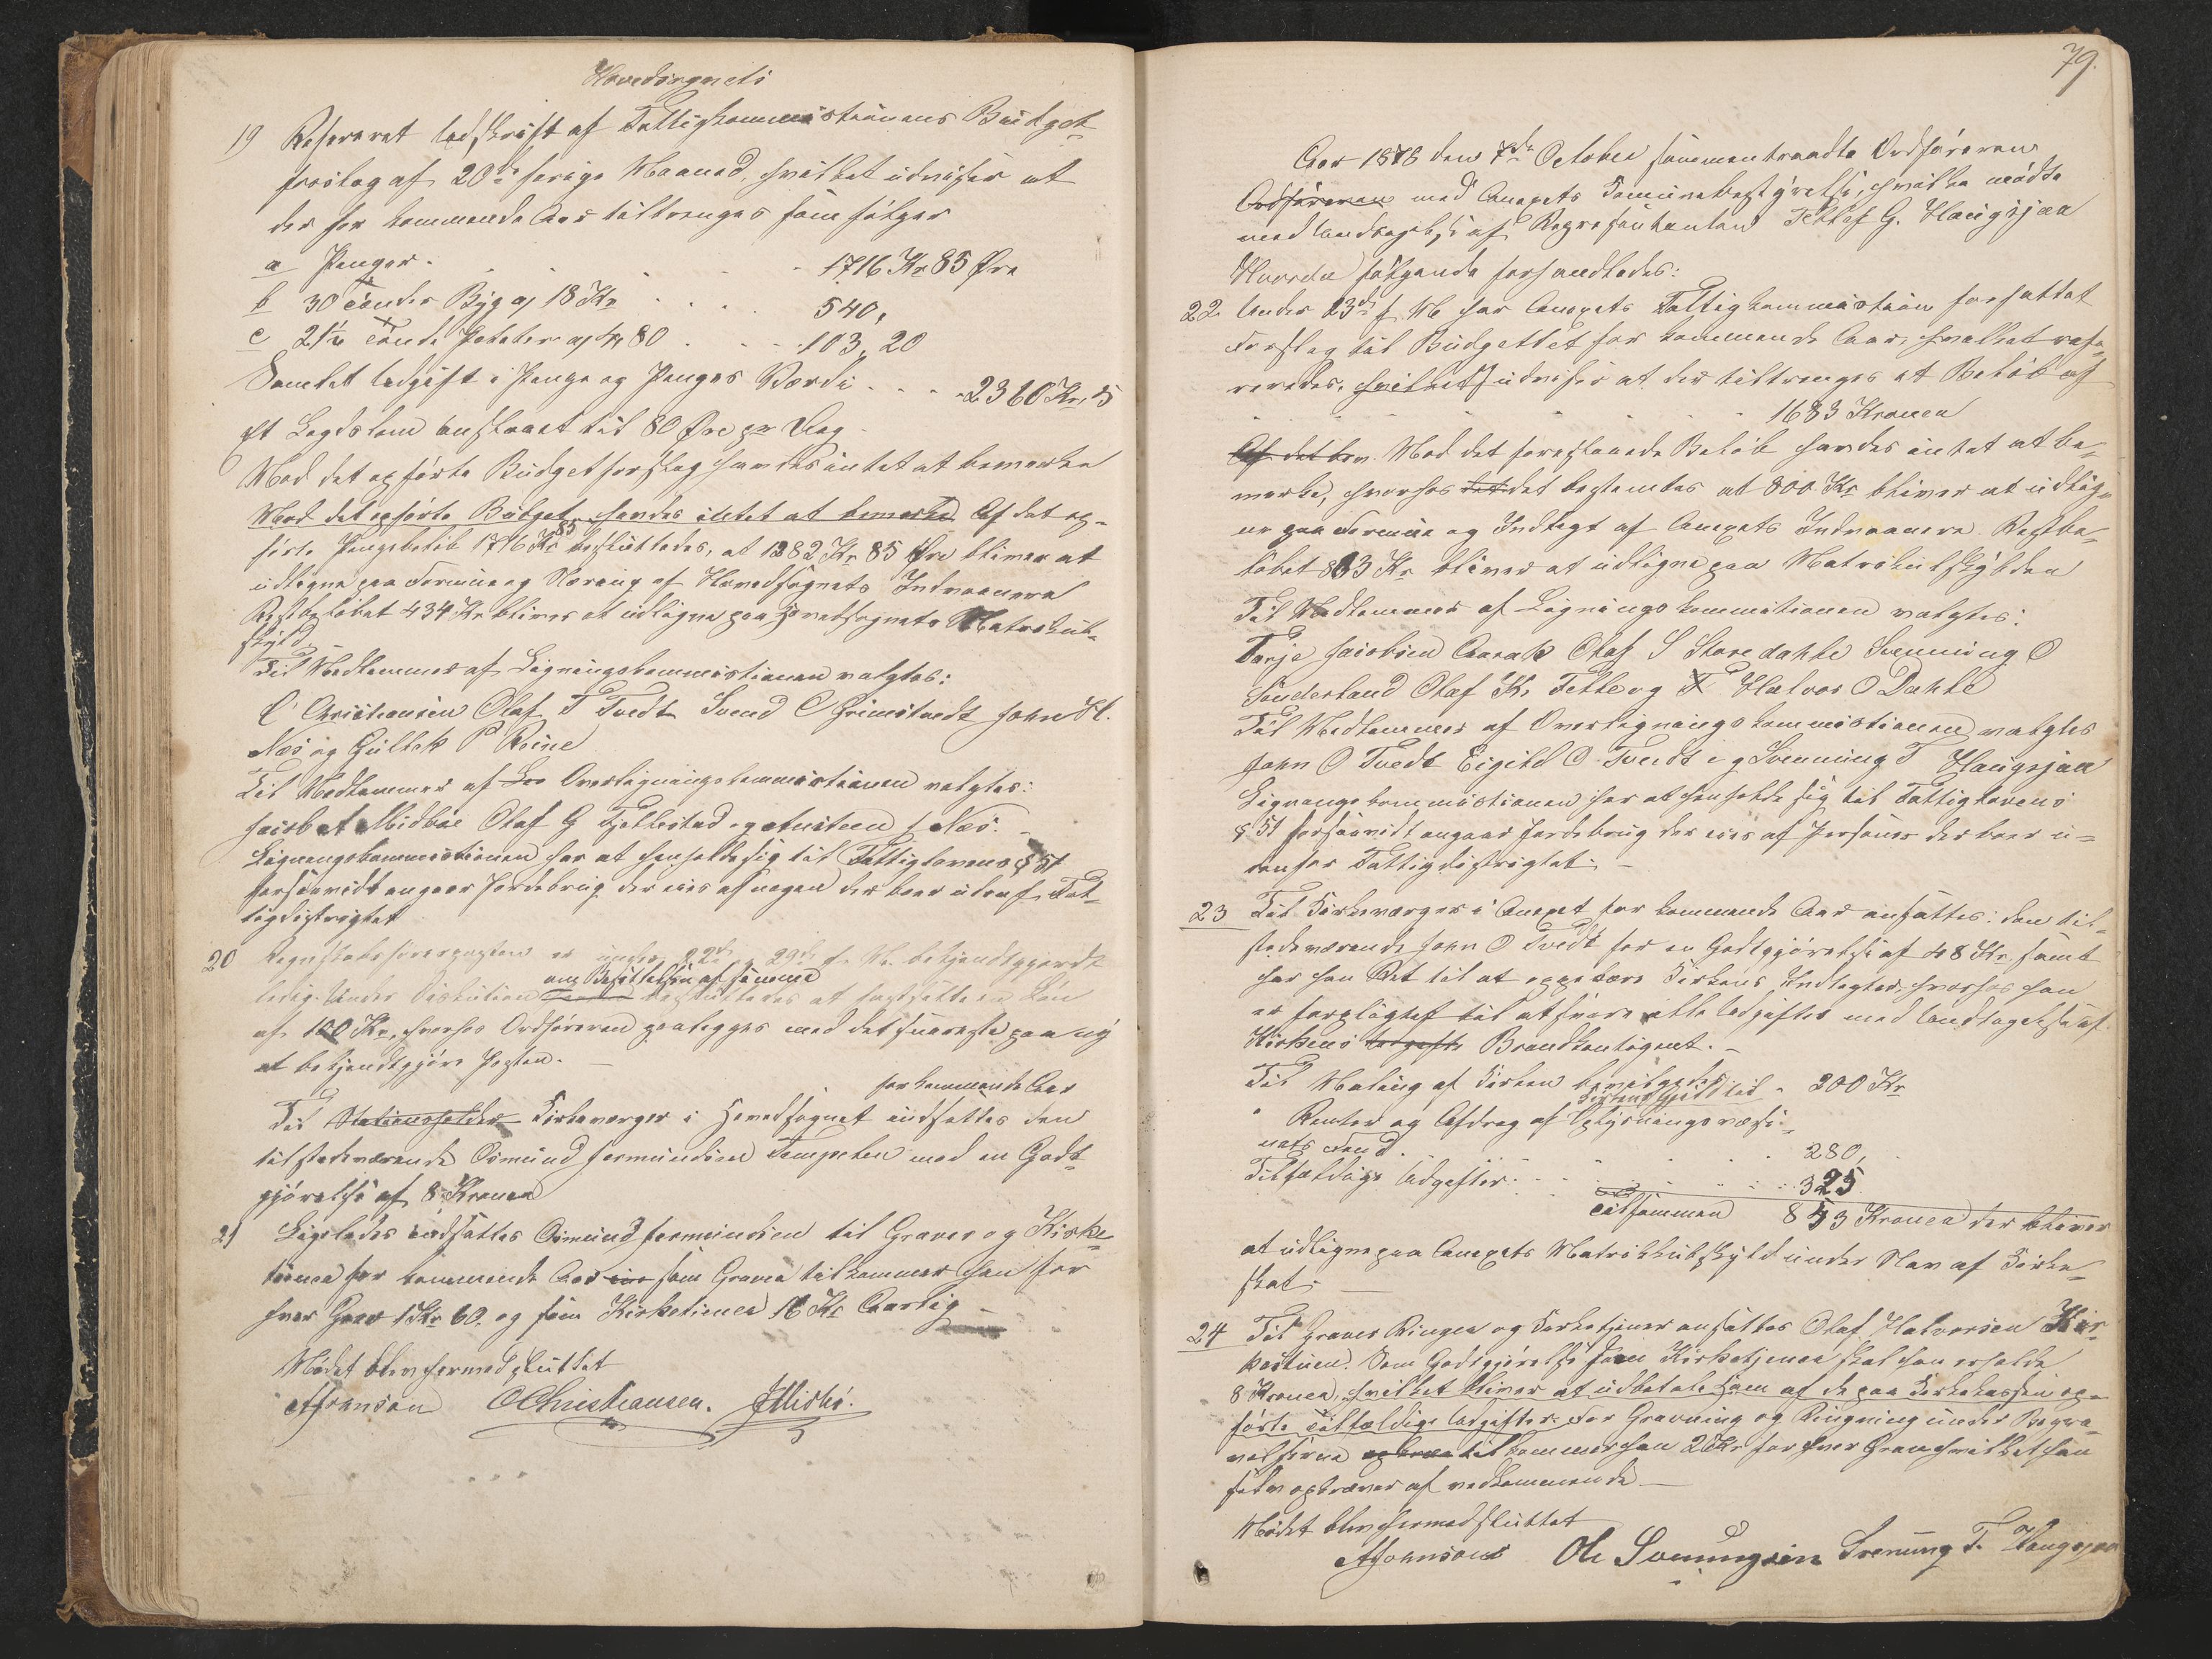 Hovedsognets
19 Refereret Udskrift af Fattigkommistionens Budget
forslag af 20de forige Maaned, hvilket udviser at
der for kommende Aar tiltrenges som følger
a Penger . . . . . 1716 Kr 85 Øre
b 30 Tønder Byg a 18 Kr . . . 540,
c 21½ Tønde Poteter a 4,80 . . . 103,20
Samlet Udgift i Penge og Penges Værdi . . . 2360 Kr, 5
Et Legdslem anslaaet til 80 Øre pr Dag
Mod det opførte Budgetforslag havdes intet at bemærke
Mod det opførte Budget havdes intet at bemærke Af det op-
førte Pengebeløb 1716 Kr 85 besluttedes, at 1282 Kr 85 Øre bliver at
udligne paa Formue og Næring af Hovedsognets Indvaanere
Restbeløbet 434 Kr bliver at udligne paa Hovedsognets Matrikul-
skyld
Til Medlemmer af Ligningskommistionen valgtes:
C Christiansen Olaf T Tvedt Svend O Grimstvedt John H.
Næs og Gullek P Reine
Til Medlemmer af Overligningskommistionen valgtes:
Jacob A Midbøe Olaf G Fjellestad og Austeen J Næs.
Ligningskommistionen har at henholde sig til Fattiglovens § 51
forsaavidt angaar Jordebrug der eies af nogen der boer udenf. Fat-
tigdistrigtet
20 Regnskabsførerposten er under 22de og 29de f. M. bekjendtgjordt
ledig. Under Diskution om Besættelsen af samme besluttedes at fastsætte en Løn
af 100 Kr, hvorhos Ordføreren paalegges med det snareste paa ny
at bekjendtgjøre Posten.
for kommende Aar
Til Stationsholder Kirkeverger i Hovedsognet indsattes den
tilstedeværende Osmund Jermundsen Tempelen med en Godt-
gjørelse af 8 Kroner
21 Ligeledes indsattes Osmund Jermundsen til Graver og Kirke-
tiener for kommende Aar som Graver tilkommer han for
hver Grav 1 Kr 60. og som Kirketiener 16 Kr Aarlig
Mødet blev hermed sluttet
AJohnson OChristiansen. JMidbö.
79.
Aar 1878 den 7de October sammentraadte Ordføreren
Ordføreren med Anexets Komunebestyrelse, hvilke mødte
med Undtagelse af Representanten Tellef G. Haugsjaa
Hvorda følgende forhandledes:
22. Under 23de f M har Anexets Fattigkommistion forfattet
Forslag til Budgettet for kommende Aar, hvilket refe-
reredes, hvilket udviser at der tiltrenges et Beløb af
1683 Kroner
Af det bem. Mod det foreslaaede Beløb havdes intet at be-
mærke, hvorhos det bestemtes at 800 Kr bliver at udlig-
ne paa Formue og Indtegt af Anexets Indvaanere. Restbe-
løbet 883 Kr bliver at udligne paa Matrikulskylden
Til Medlemmer af Ligningskommistionen valgtes:
Tarje Jacobsen Aarak Olaf S Staredahle Svenning O
Sunderland Olaf K. Felle og Halvor O Dahle
Til Medlemmer af Overligningskommistionen valgtes
John O Tvedt Eigild O Tveidt og Svenning T Haugsjaa
Ligningskommistionen har at henholde sig til Fattiglovens
§ 51 forsaavidt angaar Jordebrug der eies af Personer der boer u-
denfor Fattigdistrigtet. –
23 Til Kirkeverger i Anexet for kommende Aar ansattes: den til-
stedeværende John O Tvedt for en Godtgjørelse af 48 Kr samt
har han Ret til at oppebære Kirkens Indtegter, hvorhos han
er forpligtet til at svare alle Udgifter med Undtagelse af
Kirkens Udgift Brandkontigent. –
Til Maling af Kirken bevilgedes . 200 Kr
Kirkens Gjeld til
" Renter og Afdrag af Oplysningsvæse-
nets Fond . . . . . 280,
Tilfældige Udgifter . . . . . 325
Tilsammen 853 Kroner der bliver
at udligne paa Anexets Matrikkulskyld under Navn af Kirke-
skat. –
24 Til Graver Ringer og Kirketjener ansattes Olaf Halvorsen Kir-
kestuen. Som Godtgjørelse som Kirketjener skal han erholde
8 Kroner, hvilket bliver at udbetale ham af de paa Kirkekassen op-
førte tilfældige Udgifter. For Gravning og Ringning under Begra-
velserne tilkommer han 2 Kr for hver Grav hvilket han
selv opkræver af vedkommende –
Mødet blev hermed sluttet
AJohnson Ole Svenningsen Svenung T. Haugsjaa